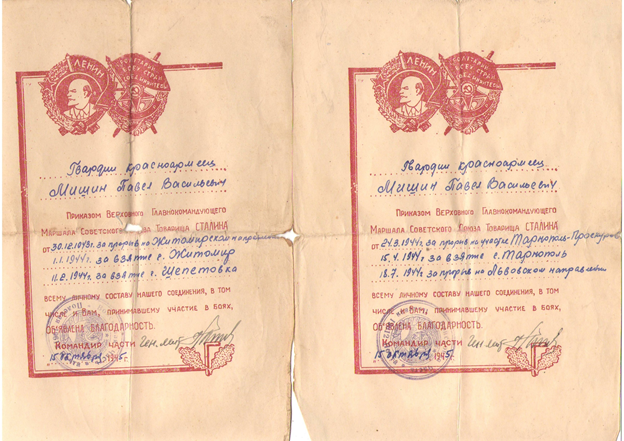 ЛЕНИН
ПРОЛЕТАРИИ ВСЕХ СТРАН СОЕДИНЯЙТЕСЬ
Гвардии красноармеец
Мишин Павел Васильевич
Приказом Верховного Главнокомандующего
Маршала Советского Союза Товарища СТАЛИНА
от 30.12.1943г. за прорыв на Житомирском направлении
1.1.1944г. за взятие г. Житомир
11.2.1944г. за взятие г. Шепетовка
всему личному составу нашего соединения, в том
числе и Вам, принимавшему участие в боях,
ОБЪЯВЛЕНА БЛАГОДАРНОСТЬ.
Командир части Ген. май.
15 октября 1945г.
ЛЕНИН
ПРОЛЕТАРИИ ВСЕХ СТРАН СОЕДИНЯЙТЕСЬ
Гвардии красноармеец
Мишин Павел Васильевич
Приказом Верховного Главнокомандующего
Маршала Советского Союза Товарища СТАЛИНА
от 24.3.1944г. за прорыв на участке Тарнополь-Проскуров
15.4.1944г. за взятие г. Тарнополь
18.7.1944г. за прорыв на Львовском направлении
всему личному составу нашего соединения, в том
числе и Вам, принимавшему участие в боях,
ОБЪЯВЛЕНА БЛАГОДАРНОСТЬ.
Командир части Ген. май.
15 октября 1945г.